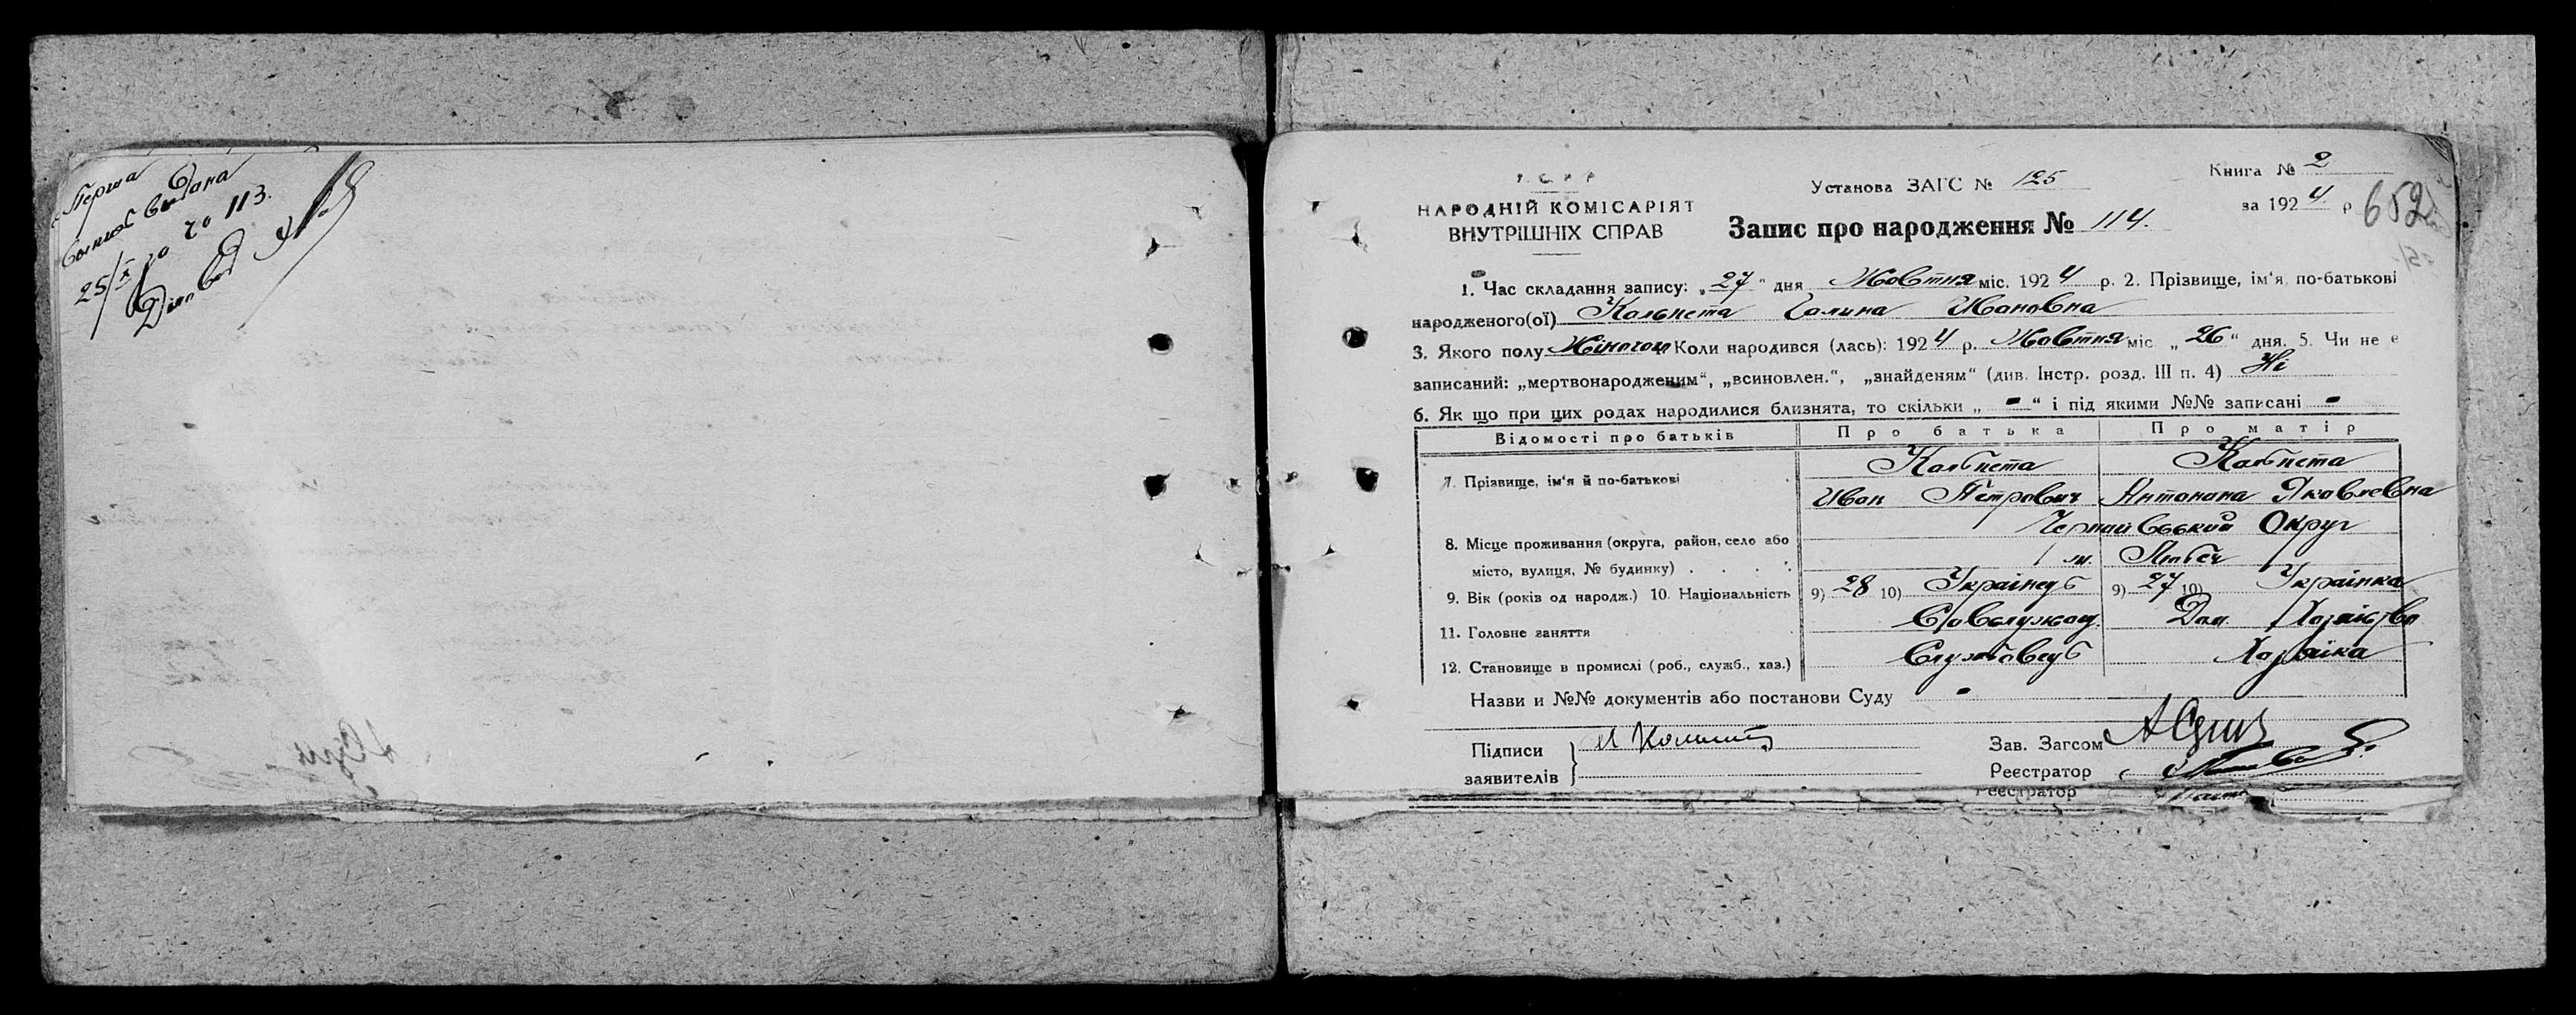 Перша
виписъ видана
25/X 20 ч0 113.
У.С.Р.Р.
НАРОДНІЙ КОМІСАРІЯТ
ВНУТРІШНІХ СПРАВ
Установа ЗАГС № 125
Запис про народження № 114.
Книга № 2
за 1924 р
652
1. Час складання запису: „27" дня Жовтня міс. 1924 р. 2. Прізвище, ім'я, по-батькові
народженого(ої) Кольпета Галина Ивановна
3. Якого полу Жіночого Коли народився (лась): 1924 р. Жовтня міс „26" дня. 5. Чи не є
записаний: „мертвонародженим", „всиновлен.", „знайденям" (див. Інстр. розд. III п. 4) Ні
6. Як що при цих родах народилися близнята, то скільки „-" і під якими №№ записані -
Відомості про батьків Про батька Про матір
7. Прізвище, ім'я й по-батькові Кольпета Кольпета
Иван Петрович Антонина Яковлевна
8. Місце проживання (округа, район, село або
місто, вулиця, № будинку) Округ
м. Любеч
9. Вік (років од народж.) 10. Національність 9) 28 10) Українець 9) 27 10) Українка
11. Головне заняття Совслужащ. Дом. Хозяйство
12. Становище в промислі (роб., служб., хаз.) Службовець Хазяйка
Назви и №№ документів або постанови Суду -
Підписи
заявителів
Зав. Загсом
Реєстратор
Реєстратор